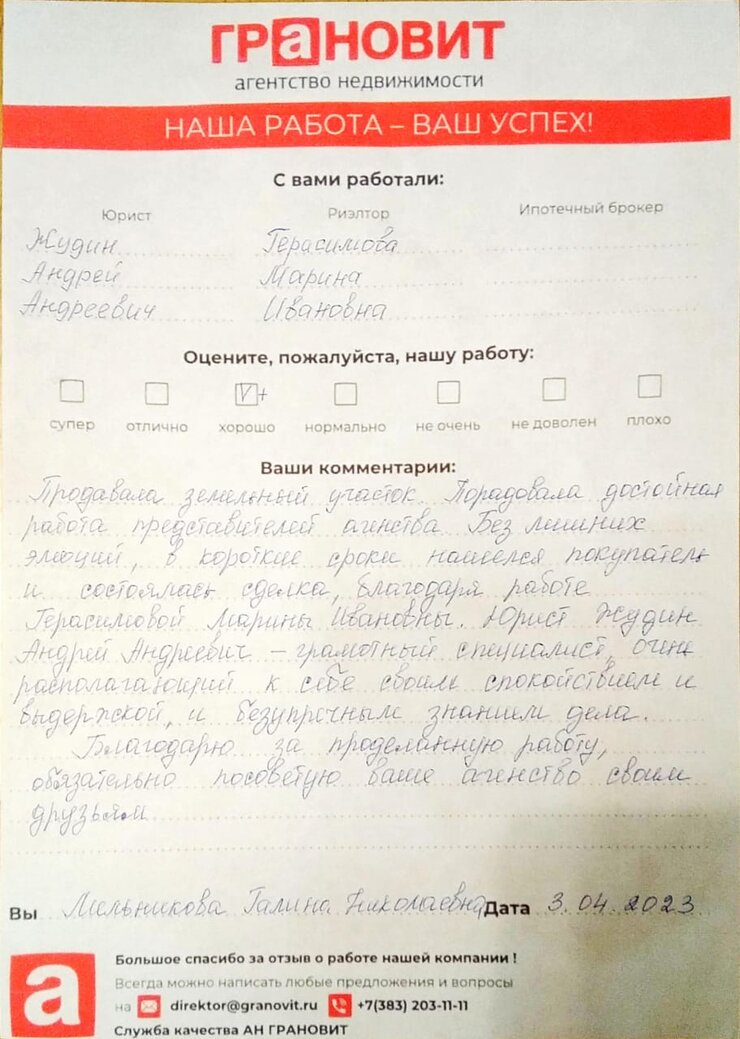 ГРаНОВИТ
агентство недвижимости
НАША РАБОТА – ВАШ УСПЕХ!
С вами работали:
Юрист Риэлтор Ипотечный брокер
Жудин Герасимова
Андрей Марина
Андреевич Ивановна
Оцените, пожалуйста, нашу работу:
V+
супер отлично хорошо нормально не очень не доволен плохо
Ваши комментарии:
Продавала земельный участок. Порадовала достойная
работа представителей агенства. Без лишних
эмоций, в короткие сроки нашелся покупатель
и состоялась сделка, благодаря работе
Герасимовой Марины Ивановны. Юрист Жудин
Андрей Андреевич – грамотный специалист, очень
располагающий к себе своим спокойствием и
выдержкой, и безупречным знанием дела.
Благодарю за проделанную работу,
обязательно посоветую ваше агенство своим
друзьям
Вы Мельникова Галина Николаевна Дата 3.04.2023
а
Большое спасибо за отзыв о работе нашей компании !
Всегда можно написать любые предложения и вопросы
на direktor@granovit.ru +7(383) 203-11-11
Служба качества АН ГРАНОВИТ